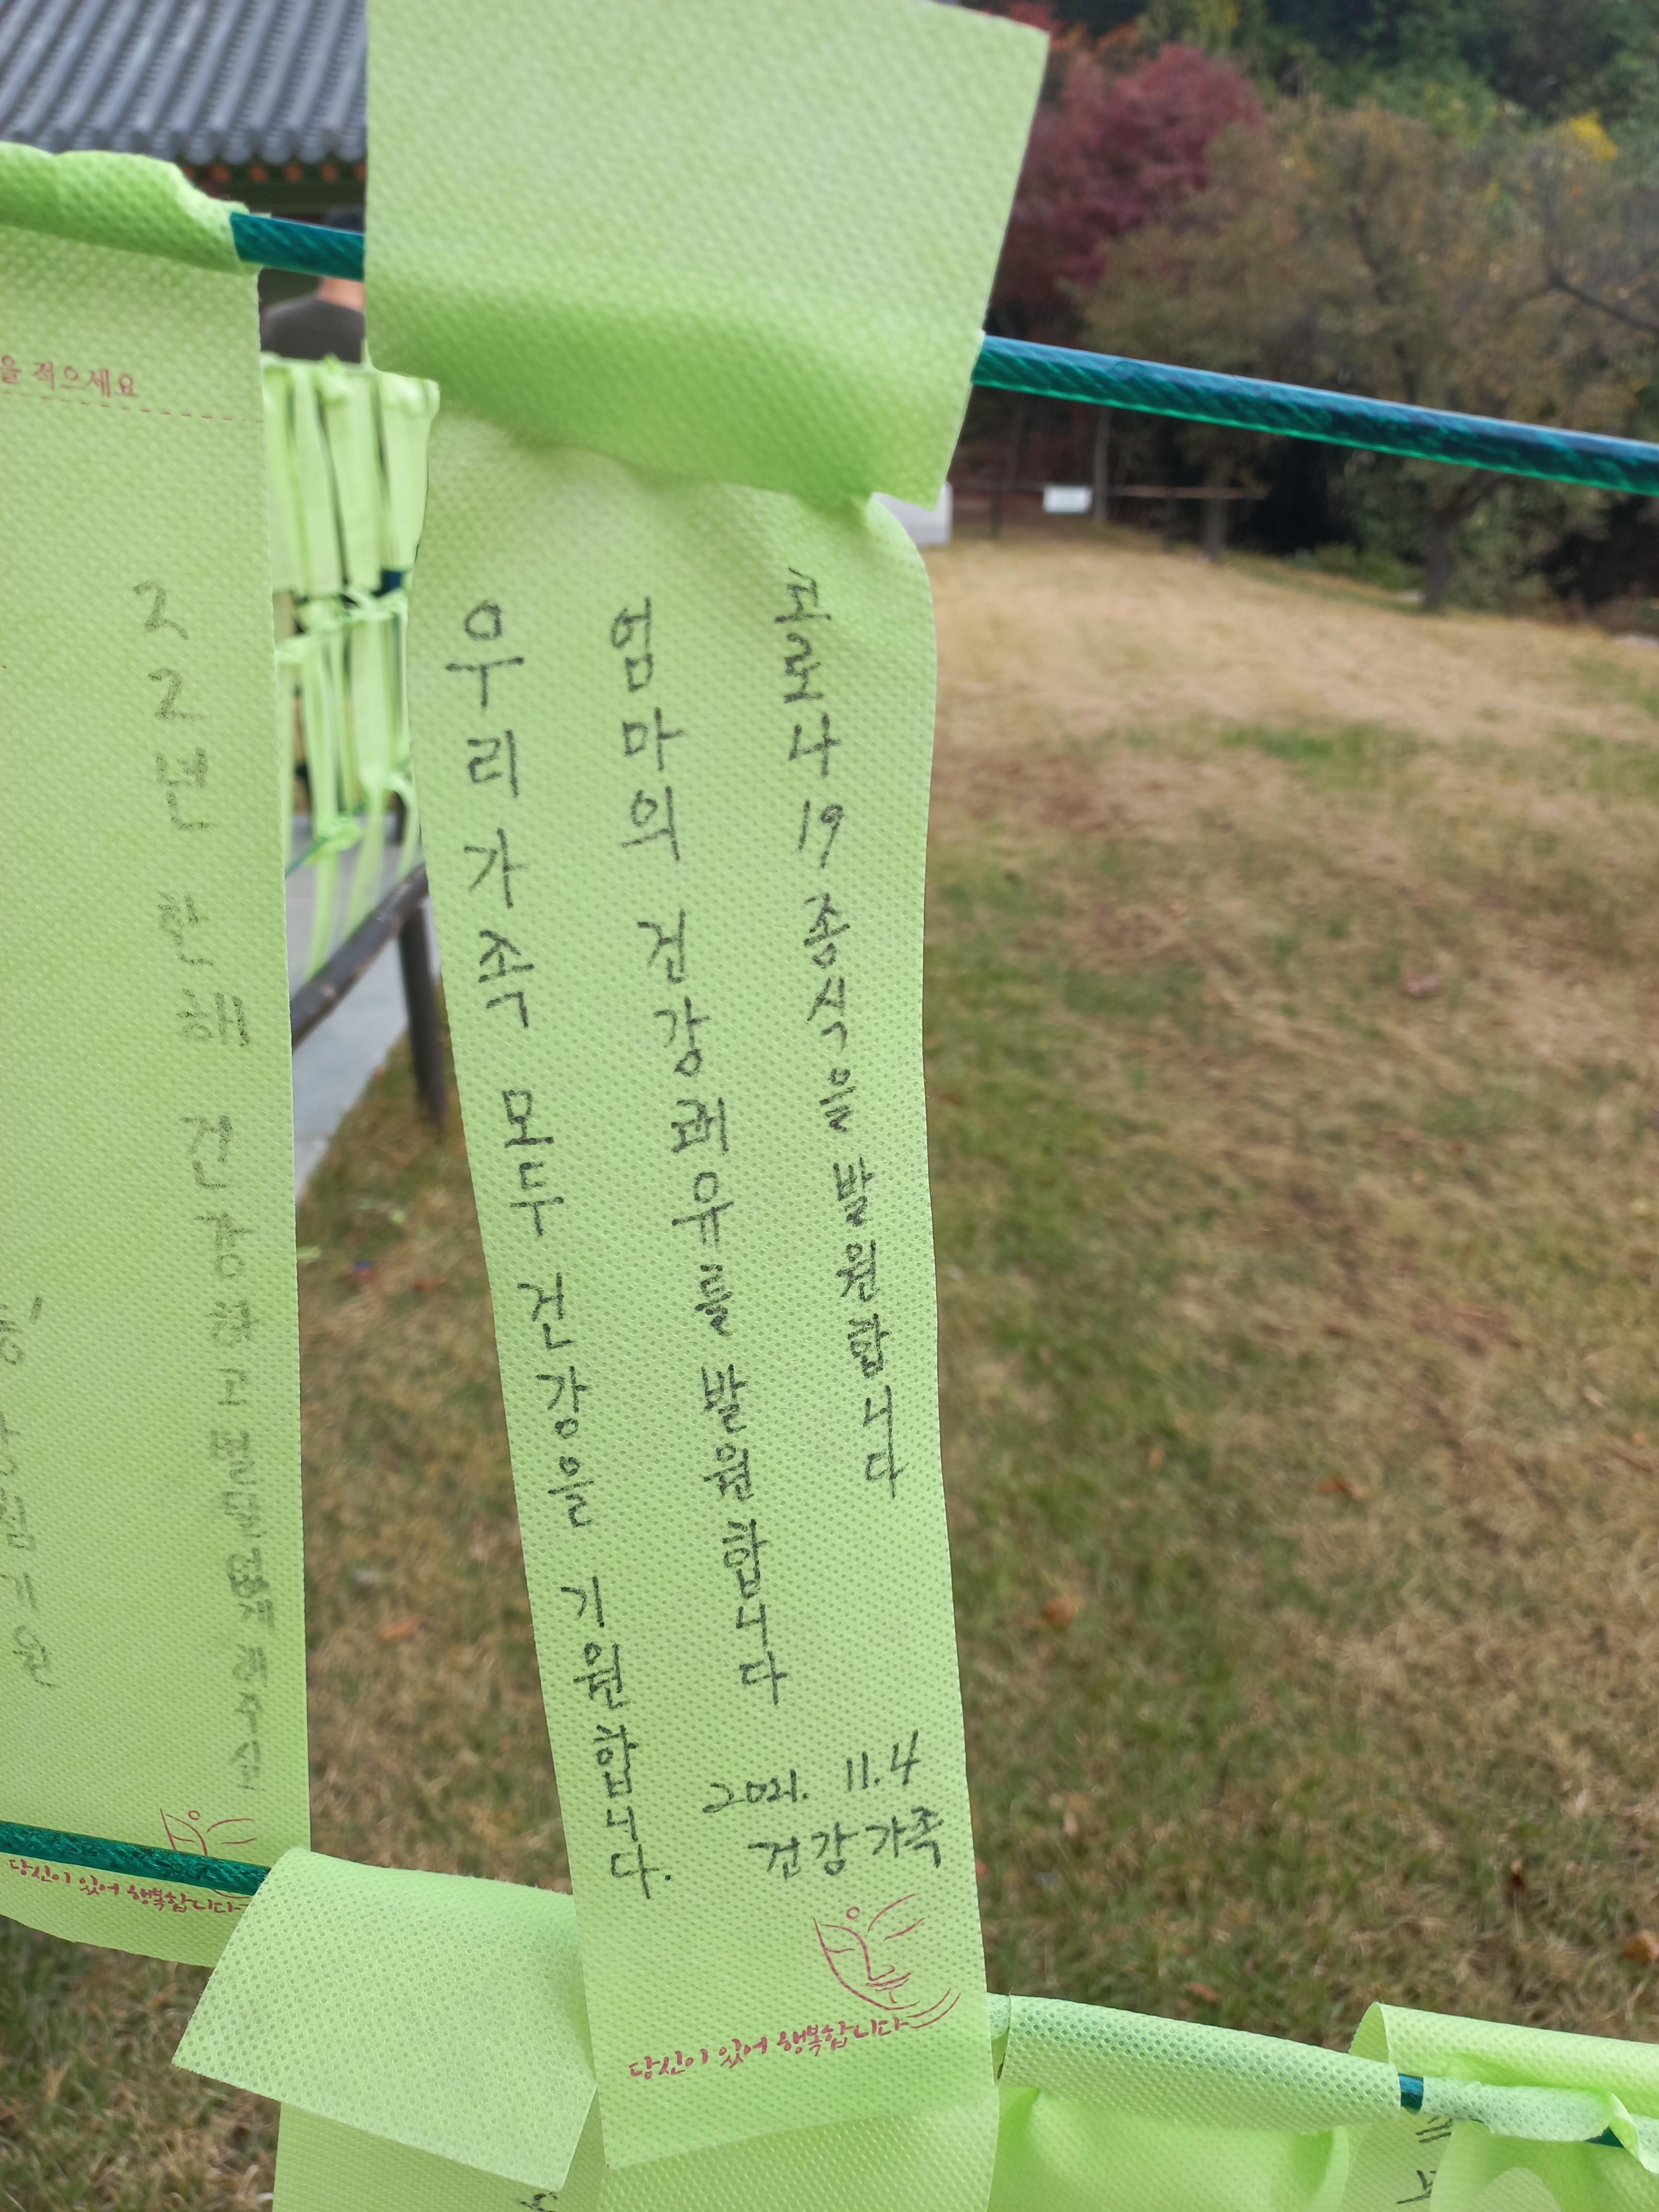 을 적으세요
22년 한해 건강하고
기원
당신이 있어 행복합니다
코로나19 종식을 발원합니다
엄마의 건강쾌유를 발원합니다
우리가족 모두 건강을 기원합니다.
2021. 11.4
건강가족
당신이 있어 행복합니다